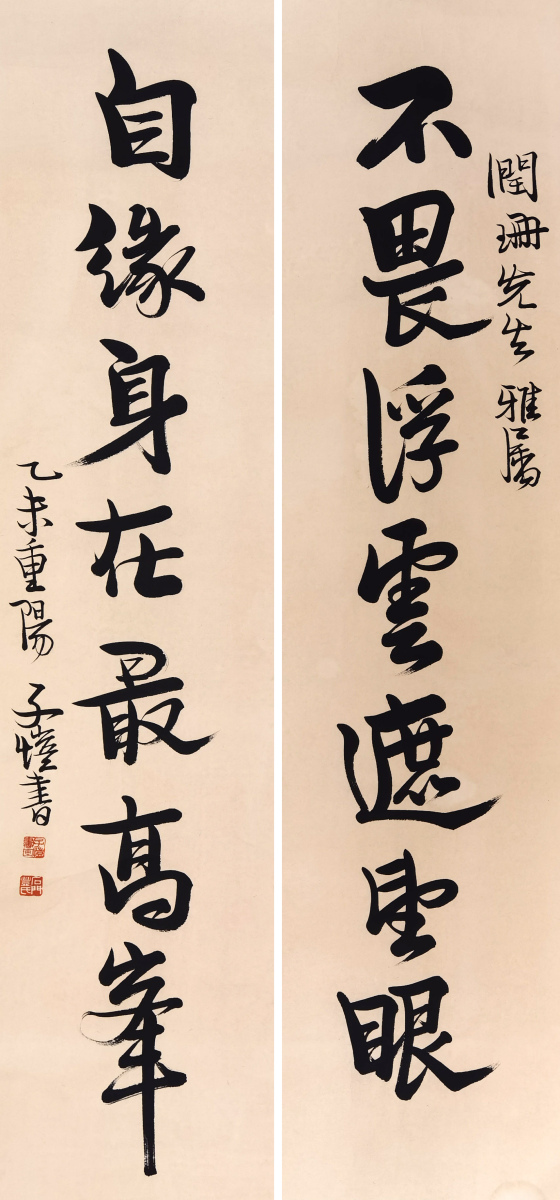 潤珊先生 雅屬
不畏浮雲遮望眼
自緣身在最高峯
乙未重陽 子愷書
石門豐氏